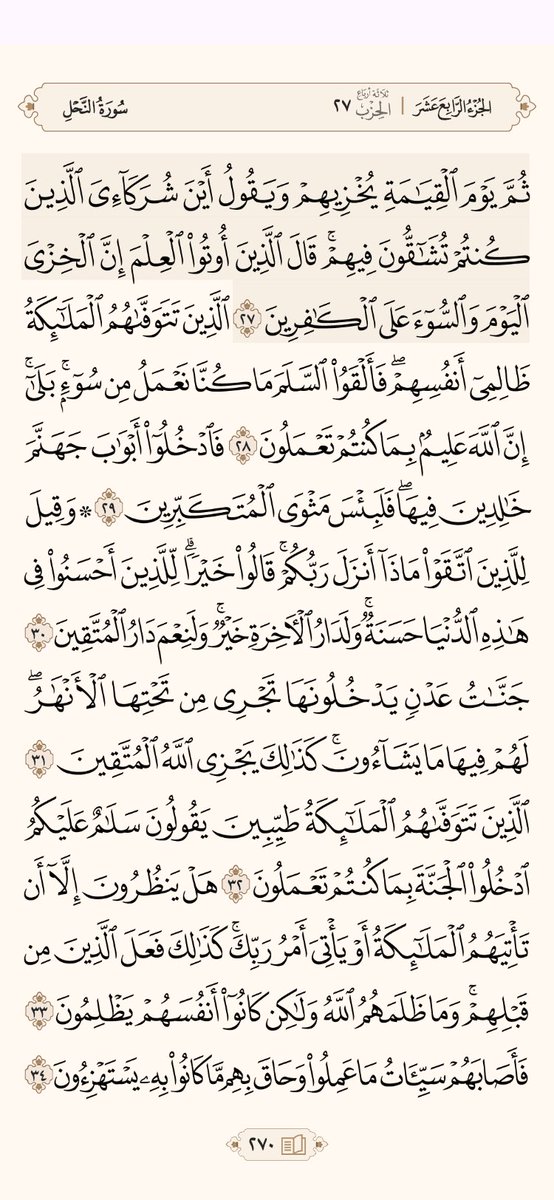 الجُزْءُ الرَّابِعَ عَشَرَ | ثلاثة أرباع الحِزْبِ ٢٧ سُورَةُ النَّحْلِ
ثُمَّ يَوْمَ ٱلْقِيَٰمَةِ يُخْزِيهِمْ وَيَقُولُ أَيْنَ شُرَكَآءِىَ ٱلَّذِينَ
كُنتُمْ تُشَٰٓقُّونَ فِيهِمْ ۚ قَالَ ٱلَّذِينَ أُوتُوا۟ ٱلْعِلْمَ إِنَّ ٱلْخِزْىَ
ٱلْيَوْمَ وَٱلسُّوٓءَ عَلَى ٱلْكَٰفِرِينَ ٢٧ ٱلَّذِينَ تَتَوَفَّىٰهُمُ ٱلْمَلَٰٓئِكَةُ
ظَالِمِىٓ أَنفُسِهِمْ ۖ فَأَلْقَوُا۟ ٱلسَّلَمَ مَا كُنَّا نَعْمَلُ مِن سُوٓءٍۭ ۚ بَلَىٰٓ ۚ
إِنَّ ٱللَّهَ عَلِيمٌۢ بِمَا كُنتُمْ تَعْمَلُونَ ٢٨ فَٱدْخُلُوٓا۟ أَبْوَٰبَ جَهَنَّمَ
خَٰلِدِينَ فِيهَا ۖ فَلَبِئْسَ مَثْوَى ٱلْمُتَكَبِّرِينَ ٢٩ ۞ وَقِيلَ
لِلَّذِينَ ٱتَّقَوْا۟ مَاذَآ أَنزَلَ رَبُّكُمْ ۚ قَالُوا۟ خَيْرًا ۗ لِّلَّذِينَ أَحْسَنُوا۟ فِى
هَٰذِهِ ٱلدُّنْيَا حَسَنَةٌ ۚ وَلَدَارُ ٱلْءَاخِرَةِ خَيْرٌ ۚ وَلَنِعْمَ دَارُ ٱلْمُتَّقِينَ ٣٠
جَنَّٰتُ عَدْنٍ يَدْخُلُونَهَا تَجْرِى مِن تَحْتِهَا ٱلْأَنْهَٰرُ ۖ
لَهُمْ فِيهَا مَا يَشَآءُونَ ۚ كَذَٰلِكَ يَجْزِى ٱللَّهُ ٱلْمُتَّقِينَ ٣١
ٱلَّذِينَ تَتَوَفَّىٰهُمُ ٱلْمَلَٰٓئِكَةُ طَيِّبِينَ ۙ يَقُولُونَ سَلَٰمٌ عَلَيْكُمُ
ٱدْخُلُوا۟ ٱلْجَنَّةَ بِمَا كُنتُمْ تَعْمَلُونَ ٣٢ هَلْ يَنظُرُونَ إِلَّآ أَن
تَأْتِيَهُمُ ٱلْمَلَٰٓئِكَةُ أَوْ يَأْتِىَ أَمْرُ رَبِّكَ ۚ كَذَٰلِكَ فَعَلَ ٱلَّذِينَ مِن
قَبْلِهِمْ ۚ وَمَا ظَلَمَهُمُ ٱللَّهُ وَلَٰكِن كَانُوٓا۟ أَنفُسَهُمْ يَظْلِمُونَ ٣٣
فَأَصَابَهُمْ سَيِّـَٔاتُ مَا عَمِلُوا۟ وَحَاقَ بِهِم مَّا كَانُوا۟ بِهِۦ يَسْتَهْزِءُونَ ٣٤
٢٧٠